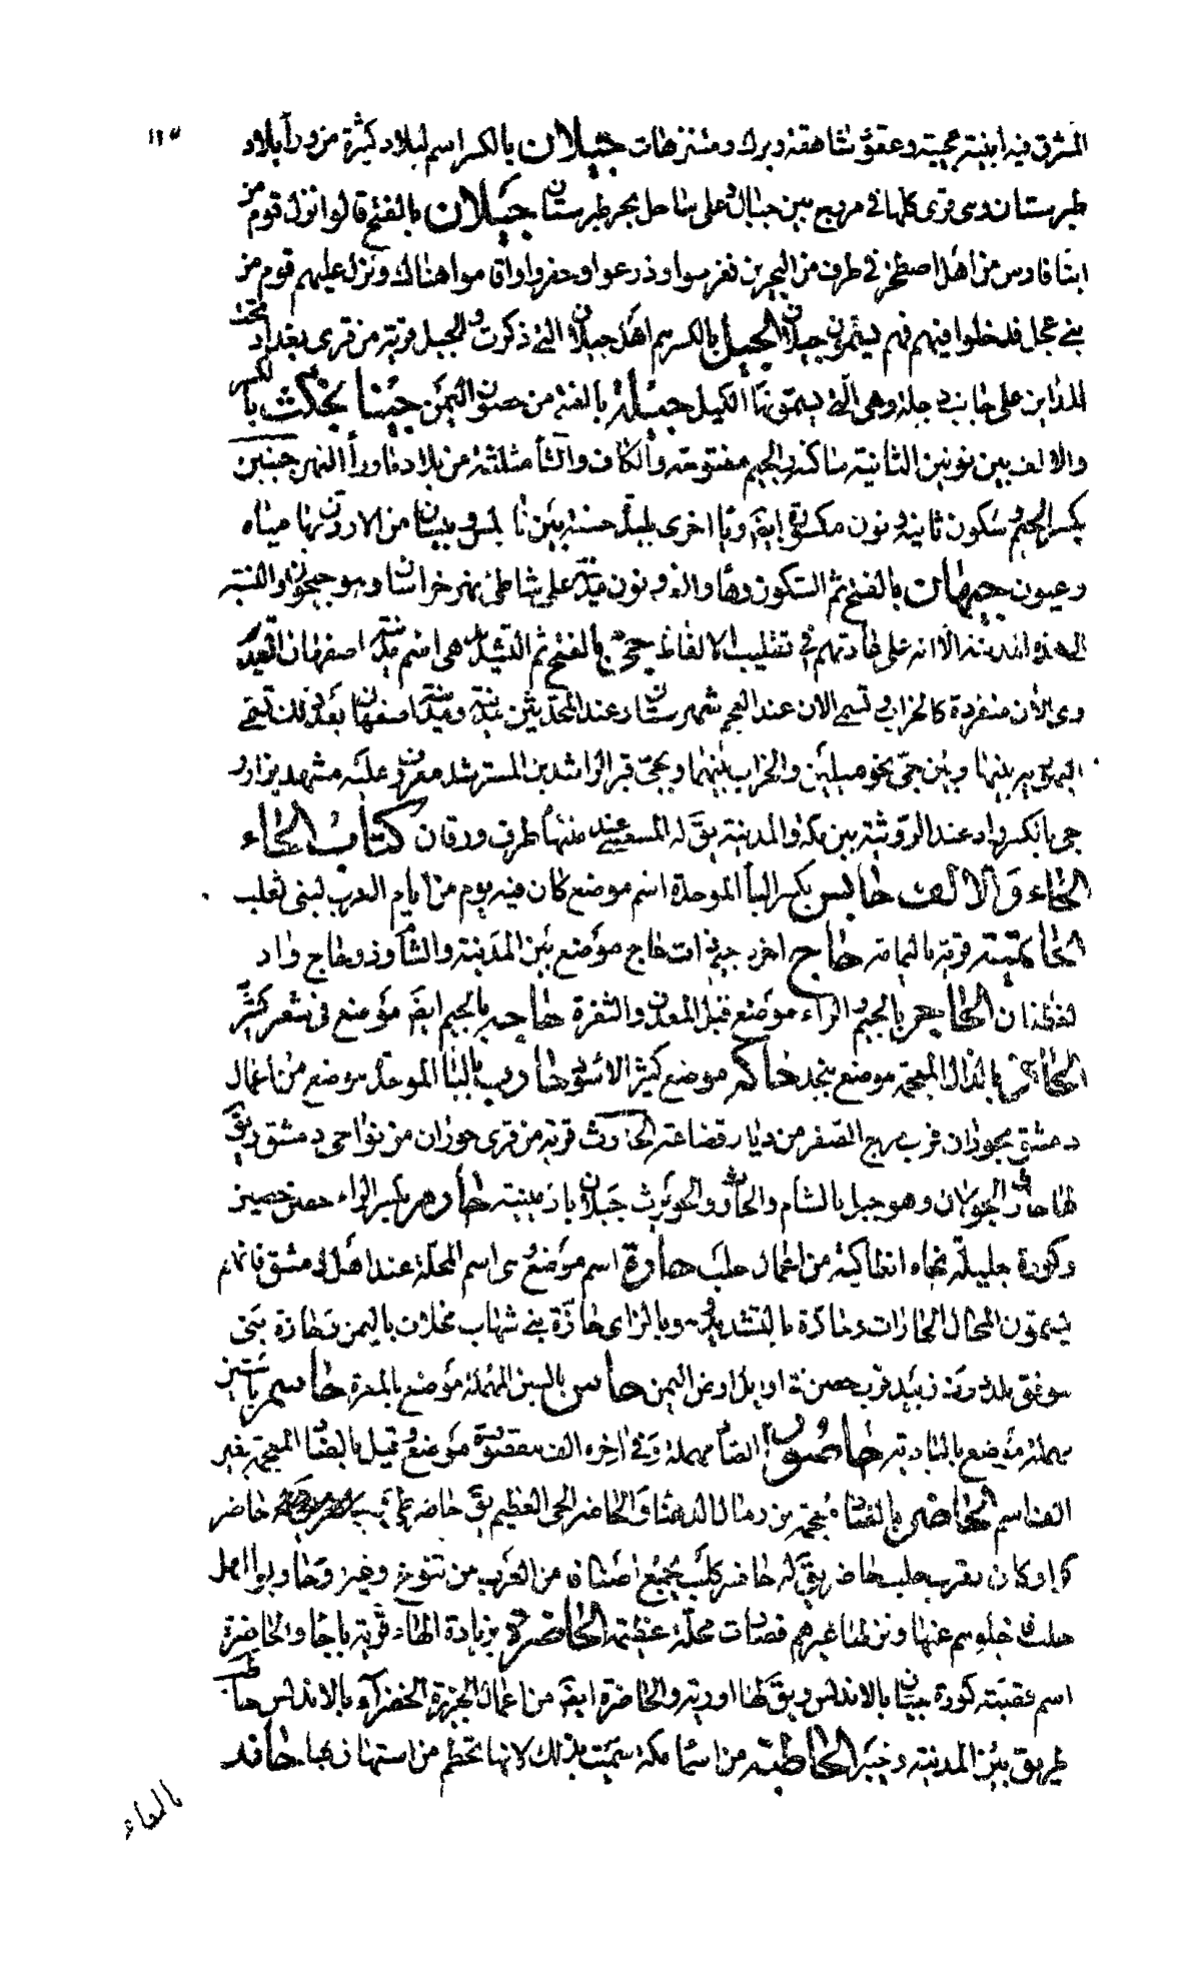 المشرق فيه ابنية عجيبة وعقود شاهقة وبرك ومتنزهات جيلان بالكسر اسم لبلاد كثيرة من ورآ بلاد
طبرستان وهى قرى كلها فى مروج بين جبال وعلى ساحل بحر طبرستان جيلان بالفتح قالوا نزل قوم من
ابنا فارس من اهل اصطخر فى طرف من البحرين فغرسوا وزرعوا وحفروا واقاموا هناك ونزل عليهم قوم من
بنى عجل فدخلوا فيهم فهم يسمون جيلان الجيل بالكسر هم اهل جيلان التى ذكرت والجيل قرية من قرى بغداد تحت
المداين على جانب دجلة وهى التى يسمونها الكيل جيلة بالفتح من حصون اليمن جينانجكث بالكسر
والالف بين نونين الثانية ساكنة والجيم مفتوحة والكاف والثا مثلثة من بلاد ماورأ النهر جينين
بكسر الجيم وسكون ثانيه ونون مكسورة ايضا ويا اخرى بليدة حسنة بين نابلس وبيسان من الاردن بها مياه
وعيون جيهان بالفتح ثم السكون وها والف ونون مدينة على شاطئ نهر خراسان وهو جيحون والنسبة
الى هذه المدينة الا انه على عادتهم فى تقليب الالفاظ جى بالفتح ثم التشديد هى اسم مدينة اصفهان القديمة
وهى الآن منفردة كالخراب وتسمى الان عند العجم شهرستان وعند المحدثين مدينة ومدينة اصفهان بعد ذلك تسمى
اليهودية بينها وبين جى نحو ميلين والخراب بينهما وبجى قبر الراشد بن المسترشد معروف وعليه مشهد يزار
جى بالكسر واد عند الرويثة بين مكة والمدينة يق له المتعشى عنده منتها طرف ورقان كتاب الحاء
الحاء والالف حابس بكسر البأ الموحدة اسم موضع كان فيه يوم من ايام العرب لبنى تغلب
الحاتمية قرية باليمامة حاج اخره جيم ذات حاج موضع بين المدينة والشأم وذو حاج واد
لغطفان الحاجر بالجيم والراء موضع قبل المعدن والنقرة حاجه بالجيم ايضا موضع فى شعر كثير
الحاذ بالذال المعجمة موضع بنجد حاكه موضع كثير الاسود حارب بالبا الموحدة موضع من اعمال
دمشق بحوران قرب مرج الصفر من ديار قضاعة الحارث قرية من قرى حوران من نواحى دمشق ويق
لها حارث الجولان وهو جبل بالشأم والحارث والحويرث جبلان بارمينية حارم بكسر الراء حصن حصين
وكورة جليلة تجاه انطاكية من اعمال حلب حارة اسم موضع وهى اسم المحلة عند اهل دمشق فانهم
يسمون المحال الحارات وحازة بالتشديد وبالزاى حازة بنى شهاب مخلاف باليمن وحازة بنى
موفق بلدة دون زبيد قرب حصن ارض اليمن حاس بالسين المهملة موضع بالمعرة حاسم بالسين
مهملة موضع بالبادية حاصورا الصاد مهملة وفى اخره الف مقصورة موضع وقيل بالضا المعجمة بغير
الف اسم الحاضر بالضا معجمة من رمال الدهنا والحاضر الحى العظيم يق حاضر طى حاضر
كذا وكان بقرب حلب حاضر يق له حاضر حلب يجمع اصنافا من العرب من تنوخ وغيرهم وحاربوا اهل
حلب فاجلوهم عنها ونزلها غيرهم فصارت محلة عظيمة الحاضرة بزيادة الهاء قرية باجأ والحاضرة
اسم قصبة كورة جيان بالاندلس ويق لها اوربة والحاضرة ايضا من اعمال الجزيرة الخضرآء بالاندلس حاطب
طريق بين المدينة وخيبر الحاطمة من اسما مكة سميت بذلك لانها تحطم من استهان بها حافد
بالفاء